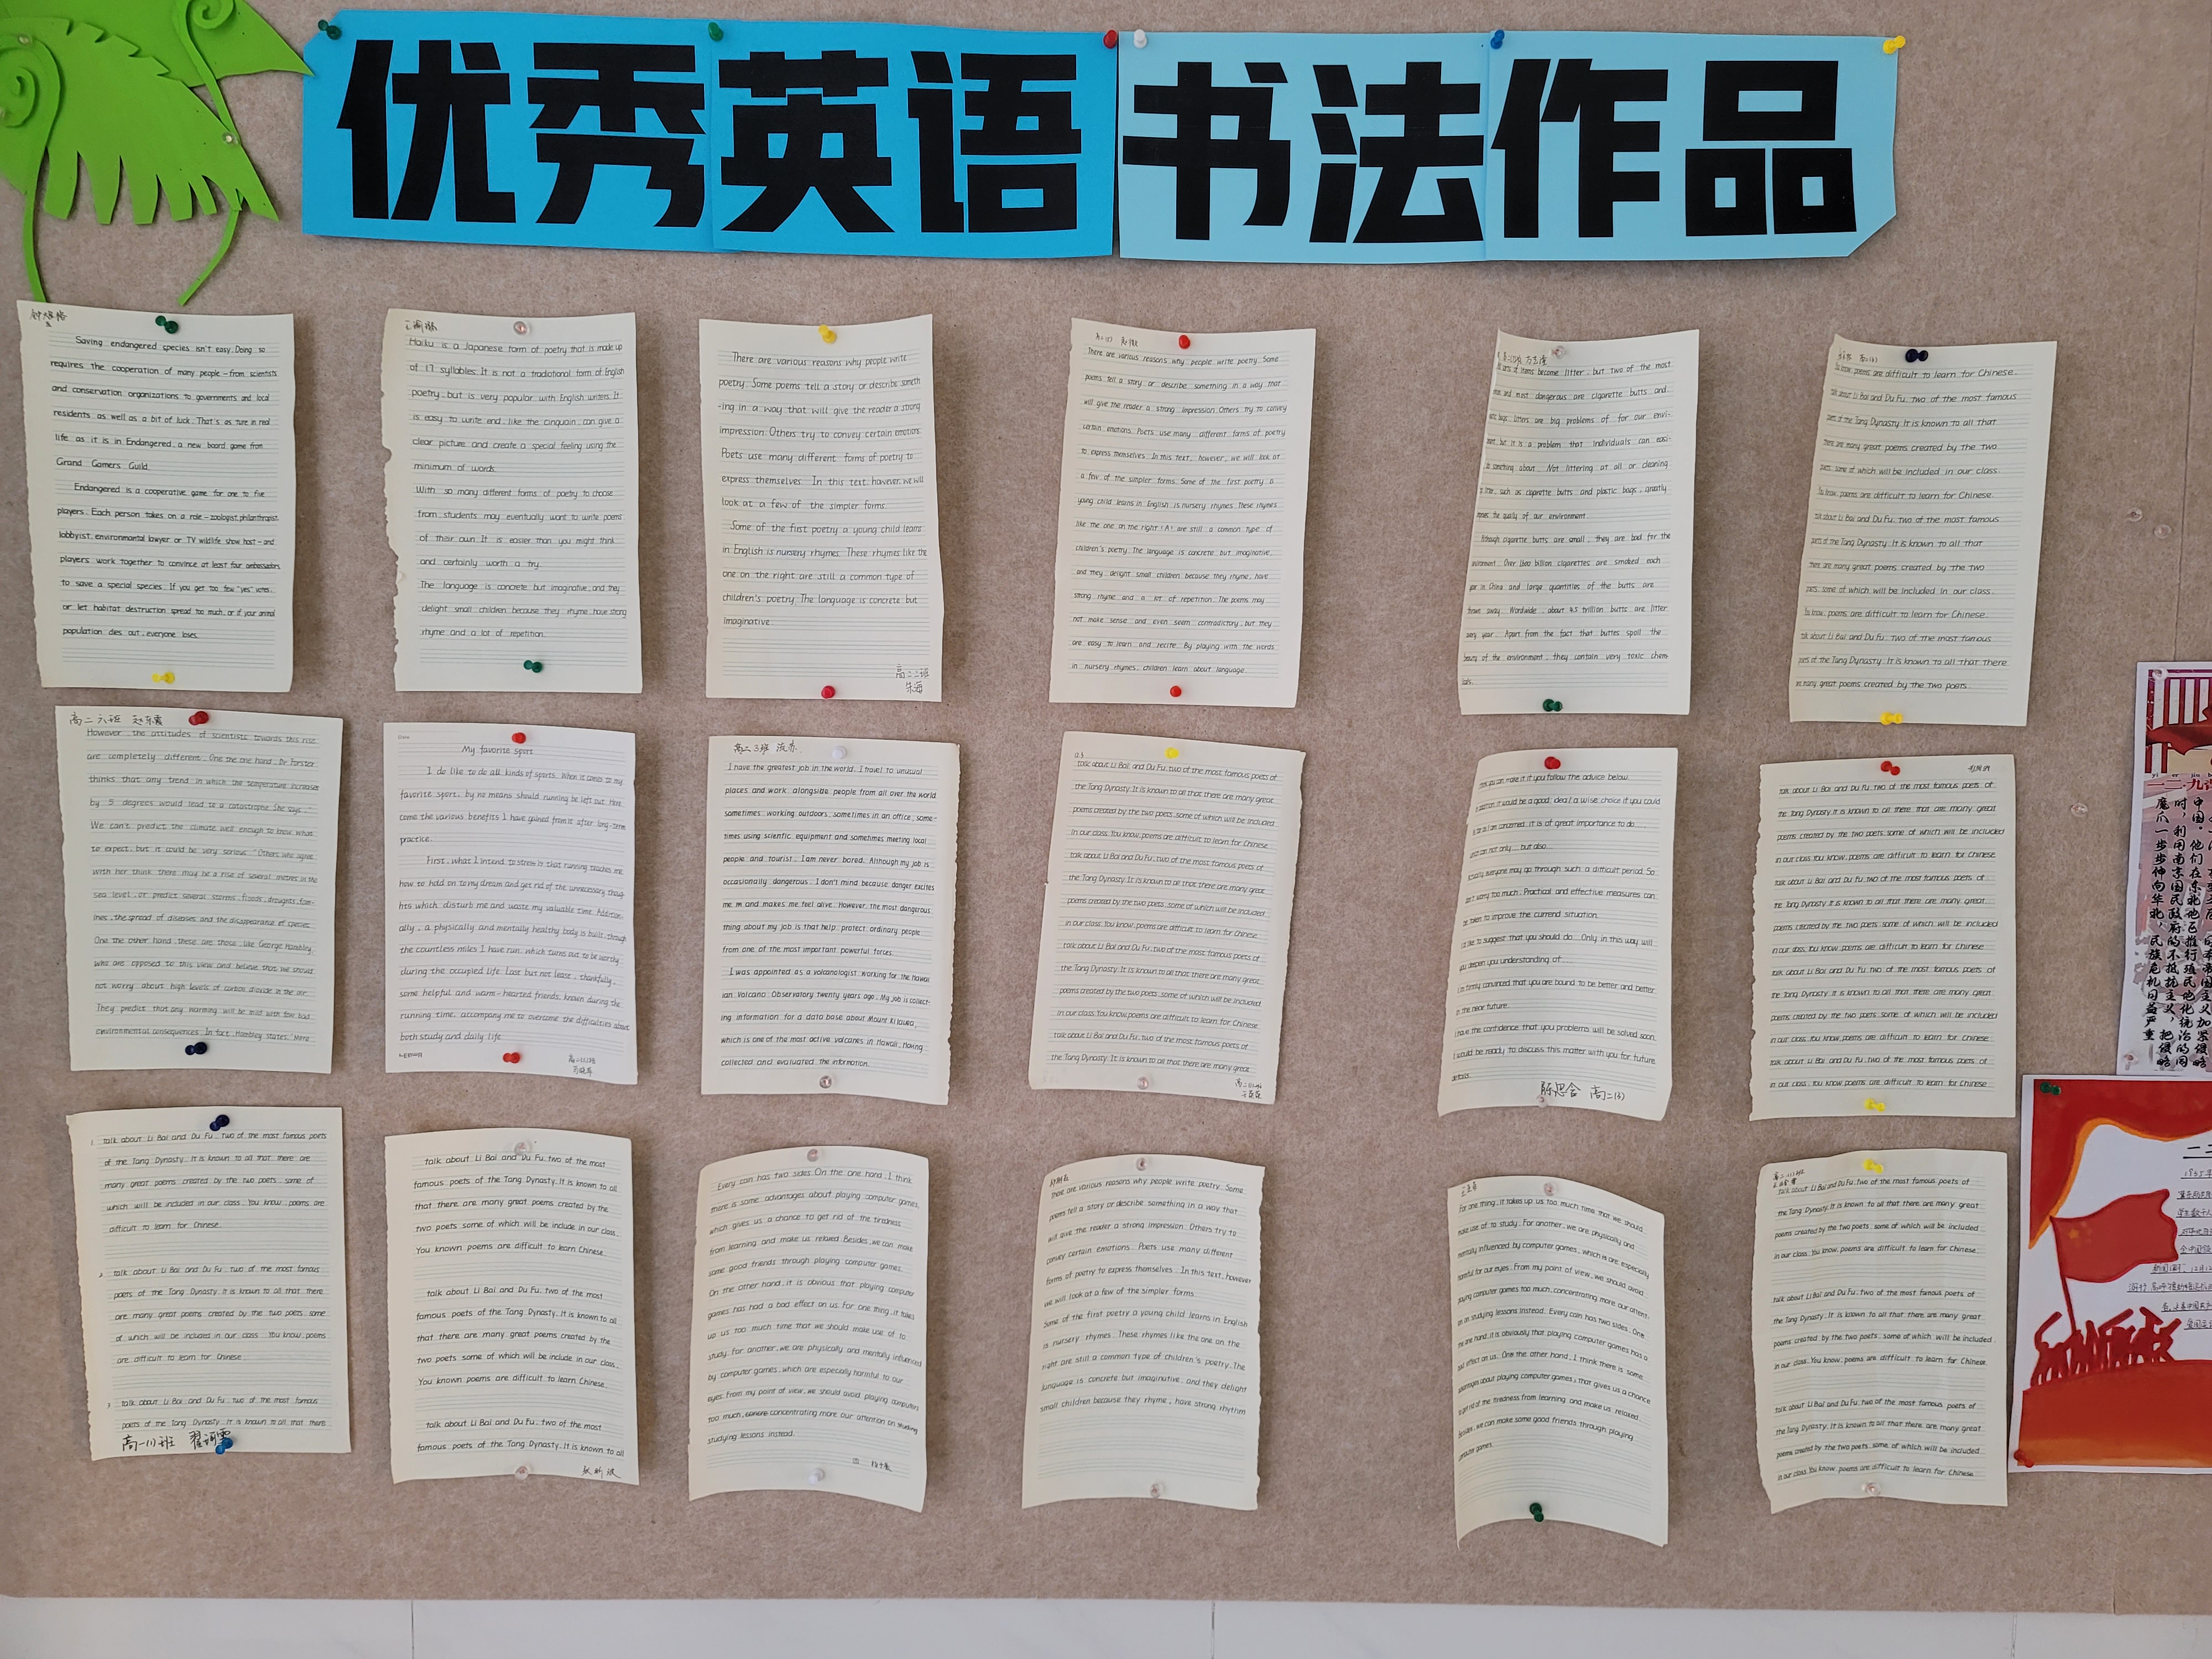 优秀英语书法作品
Saving endangered species isn't easy. Doing so
requires the cooperation of many people - from scientists
and conservation organizations to governments and local
residents as well as a bit of luck. That's as ture in real
life as it is in Endangered, a new board game from
Grand Gamers Guild.
Endangered is a cooperative game for one to five
players. Each person takes on a role - zoologist, philanthropist,
lobbyist, environmental lawyer or TV wildlife show host - and
players work together to convince at least four ambassadors
to save a special species. If you get too few "yes" votes,
or let habitat destruction spread too much, or if your animal
population dies out, everyone loses.
Haiku is a Japanese form of poetry that is made up
of 17 syllables. It is not a traditional form of English
poetry, but is very popular with English writers. It
is easy to write end, like the cinquain, can give a
clear picture and create a special feeling using the
minimum of words.
With so many different forms of poetry to choose
from students may eventually want to write poems
of their own. It is easier than you might think
and certainly worth a try.
The language is concrete but imaginative, and they
delight small children because they rhyme, have strong
rhyme and a lot of repetition.
There are various reasons why people write
poetry. Some poems tell a story or describe someth
-ing in a way that will give the reader a strong
impression. Others try to convey certain emotions.
Poets use many different forms of poetry to
express themselves. In this text, however, we will
look at a few of the simpler forms.
Some of the first poetry a young child learns
in English is nursery rhymes. These rhymes like the
one on the right are still a common type of
children's poetry. The language is concrete but
imaginative.
高二二班
朱海
There are various reasons why people write poetry. Some
poems tell a story or describe something in a way that
will give the reader a strong impression. Others try to convey
certain emotions. Poets use many different forms of poetry
to express themselves. In this text, however, we will look at
a few of the simpler forms. Some of the first poetry a
young child learns in English is nursery rhymes. These rhymes
like the one on the right (A) are still a common type of
children's poetry. The language is concrete but imaginative,
and they delight small children because they rhyme, have
strong rhyme and a lot of repetition. The poems may
not make sense and even seem contradictory, but they
are easy to learn and recite. By playing with the words
in nursery rhymes, children learn about language.
sorts of items become litter, but two of the most
and most dangerous are cigarette butts and
bags. Litters are big problems of for our envi-
but it is a problem that individuals can easi-
something about. Not littering at all or cleaning
such as cigarette butts and plastic bags, greatly
the quality of our environment.
Although cigarette butts are small, they are bad for the
environment. Over billion cigarettes are smoked each
year in China and large quantities of the butts are
thrown away. Worldwide, about 4.5 trillion butts are litter
every year. Apart from the fact that buttes spoil the
beauty of the environment, they contain very toxic chem
icals.
You know, poems are difficult to learn for Chinese.
talk about Li Bai and Du Fu, two of the most famous
poets of the Tang Dynasty. It is known to all that
there are many great poems created by the two
poets, some of which will be included in our class.
You know, poems are difficult to learn for Chinese.
talk about Li Bai and Du Fu, two of the most famous
poets of the Tang Dynasty. It is known to all that
there are many great poems created by the two
poets, some of which will be included in our class.
You know, poems are difficult to learn for Chinese.
talk about Li Bai and Du Fu, two of the most famous
poets of the Tang Dynasty. It is known to all that there
are many great poems created by the two poets.
高二六班 赵东霞
However, the attitudes of scientists towards this rise
are completely different. One the one hand, Dr Forster
thinks that any trend in which the temperature increases
by 5 degrees would lead to a catastrophe. She says, "
We can't predict the climate well enough to know what
to expect, but it could be very serious." Others who agree
with her think there may be a rise of several metres in the
sea level, or predict several storms, floods, droughts, fam-
ines, the spread of diseases and the disappearance of species.
One the other hand, these are those, like George Hambley,
who are opposed to this view and believe that we should
not worry about high levels of carbon dioxide in the air.
They predict that any warming will be mild with few bad
environmental consequences. In fact, Hambley states, "More
My favorite sport
I do like to do all kinds of sports. When it comes to my
favorite sport, by no means should running be left out. Here
come the various benefits I have gained from it after long-term
practice.
First, what I intend to stress is that running teaches me
how to hold on to my dream and get rid of the unnecessary thoug-
hts which disturb me and waste my valuable time. Addition-
ally, a physically and mentally healthy body is built through
the countless miles I have run, which turns out to be worthy
during the occupied life. Last but not lease, thankfully,
some helpful and warm-hearted friends, known during the
running time, accompany me to overcome the difficulties about
both study and daily life.
高二3班 流苏
I have the greatest job in the world. I travel to unusual
places and work alongside people from all over the world
sometimes working outdoors, sometimes in an office, some-
times using scientific equipment and sometimes meeting local
people and tourist. I am never bored. Although my job is
occasionally dangerous, I don't mind because danger excites
me m and makes me feel alive. However, the most dangerous
thing about my job is that help protect ordinary people
from one of the most important powerful forces.
I was appointed as a volcanologist working for the Hawaii
ian Volcano Observatory twenty years ago. My job is collect-
ing information for a data base about Mount Kilauea,
which is one of the most active volcanoes in Hawaii. Having
collected and evaluated the information.
talk about Li Bai and Du Fu, two of the most famous poets of
the Tang Dynasty. It is known to all that there are many great
poems created by the two poets, some of which will be included
in our class. You know, poems are difficult to learn for Chinese.
talk about Li Bai and Du Fu, two of the most famous poets of
the Tang Dynasty. It is known to all that there are many great
poems created by the two poets, some of which will be included
in our class. You know, poems are difficult to learn for Chinese.
talk about Li Bai and Du Fu, two of the most famous poets of
the Tang Dynasty. It is known to all that there are many great
poems created by the two poets, some of which will be included
in our class. You know, poems are difficult to learn for Chinese.
talk about Li Bai and Du Fu, two of the most famous poets of
the Tang Dynasty. It is known to all that there are many great
you can make it it you follow the advice below.
addition, it would be a good ideal a wise choice if you could
as far as I am concerned, it is of great importance to do...
not only... but also...
Actually everyone may go through such a difficult period. So
don't worry too much. Practical and effective measures can
be taken to improve the currend situation.
I'd like to suggest that you should do... Only in this way will
you deepen you understanding of
I'm firmly convinced that you are bound to be better and better
in the near future.
I have the confidence that you problems will be solved soon.
I would be ready to discuss this matter with you for future
details.
陈思含 高二(3)
talk about Li Bai and Du Fu, two of the most famous poets of
the Tang Dynasty. It is known to all there that are many great
poems created by the two poets, some of which will be included
in our class. You know, poems are difficult to learn for Chinese
talk about Li Bai and Du Fu, two of the most famous poets of
the Tang Dynasty. It is known to all that there are many great
poems created by the two poets, some of which will be included
in our class. You know, poems are difficult to learn for Chinese
talk about Li Bai and Du Fu, two of the most famous poets of
the Tang Dynasty. It is known to all that there are many great
poems created by the two poets, some of which will be included
in our class. You know, poems are difficult to learn for Chinese
talk about Li Bai and Du Fu, two of the most famous poets of
in our class. You know, poems are difficult to learn for Chinese
1. talk about Li Bai and Du Fu, two of the most famous poets
of the Tang Dynasty. It is known to all that there are
many great poems created by the two poets, some of
which will be included in our class. You know, poems are
difficult to learn for Chinese.
2. talk about Li Bai and Du Fu, two of the most famous
poets of the Tang Dynasty. It is known to all that there
are many great poems created by the two poets, some
of which will be included in our class. You know, poems
are difficult to learn for Chinese.
3. talk about Li Bai and Du Fu, two of the most famous
poets of the Tang Dynasty. It is known to all that there
高一(1)班
talk about Li Bai and Du Fu, two of the most
famous poets of the Tang Dynasty. It is known to all
that there are many great poems created by the
two poets some of which will be include in our class.
You known poems are difficult to learn Chinese.
talk about Li Bai and Du Fu, two of the most
famous poets of the Tang Dynasty. It is known to all
that there are many great poems created by the
two poets some of which will be include in our class.
You known poems are difficult to learn Chinese.
talk about Li Bai and Du Fu, two of the most
famous poets of the Tang Dynasty. It is known to all
Every coin has two sides. On the one hand, I think
there is some advantages about playing computer games,
which gives us a chance to get rid of the tiredness
from learning and make us relaxed. Besides, we can make
some good friends through playing computer games.
On the other hand, it is obvious that playing computer
games has had a bad effect on us. For one thing, it takes
up us too much time that we should make use of to
study. For another, we are physically and mentally influenced
by computer games, which are especially harmful to our
eyes. From my point of view, we should avoid playing computers
too much, concentrating more our attention on
studying lessons instead.
There are various reasons why people write poetry. Some
poems tell a story or describe something in a way that
will give the reader a strong impression. Others try to
convey certain emotions. Poets use many different
forms of poetry to express themselves. In this text, however
we will look at a few of the simpler forms.
Some of the first poetry a young child learns in English
is nursery rhymes. These rhymes like the one on the
right are still a common type of children's poetry. The
language is concrete but imaginative, and they delight
small children because they rhyme, have strong rhythm
For one thing, it takes up us too much time that we should
make use of to study. For another, we are physically and
mentally influenced by computer games, which is are especially
harmful for our eyes. From my point of view, we should avoid
playing computer games too much, concentrating more our attent-
ion on studying lessons instead. Every coin has two sides. One
the one hand, it is obviously that playing computer games has a
bad effect on us. One the other hand, I think there is some
advantages about playing computer games, that gives us a chance
to get rid of the tiredness from learning and make us relaxed.
Besides, we can make some good friends through playing
computer games.
talk about Li Bai and Du Fu, two of the most famous poets of
the Tang Dynasty. It is known to all that there are many great
poems created by the two poets, some of which will be included
in our class. You know, poems are difficult to learn for Chinese.
talk about Li Bai and Du Fu, two of the most famous poets of
the Tang Dynasty. It is known to all that there are many great
poems created by the two poets, some of which will be included
in our class. You know, poems are difficult to learn for Chinese.
talk about Li Bai and Du Fu, two of the most famous poets of
the Tang Dynasty. It is known to all that there are many great
poems created by the two poets, some of which will be included
in our class. You know, poems are difficult to learn for Chinese.
一二·九
中国，他们在东北他已推行殖民地化统治的同
时，利用南京国民政府的不抵抗主义，把侵略
魔爪一步步伸向华北，民族危机日益严重